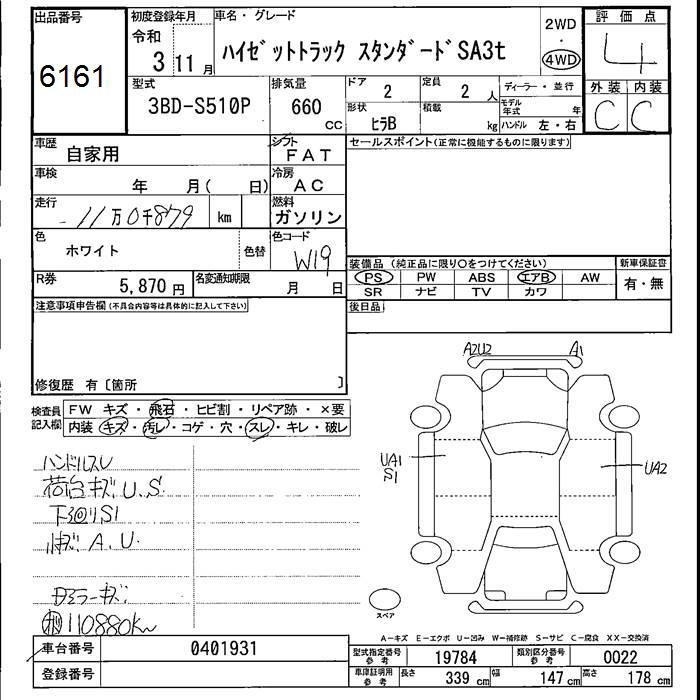 出品番号
6161
初度登録年月
令和
3 11月
車名・グレード
ハイゼットトラック スタンダードSA3t
2WD
・
4WD
評価点
4
型式
3BD-S510P
排気量
660
cc
ドア
2
定員
2 人
形状
ヒラB
積載
kg
ディーラー・並行
モデル年式 年
ハンドル 左・右
外装 内装
C C
車歴
自家用
シフト
FAT
車検
年 月( 日)
冷房
AC
走行
11万0千879 km
燃料
ガソリン
色
ホワイト
色替
色コード
W19
R券
5,870 円
名変通知期限
月 日
セールスポイント(正常に機能するものに限ります)
装備品(純正品に限り○をつけてください)
PS PW ABS エアB AW
SR ナビ TV カワ
新車保証書
有・無
後日品
注意事項申告欄(不具合内容等は具体的に記入して下さい)
修復歴 有〔箇所 〕
検査員記入欄
FW キズ・飛石・ヒビ割・リペア跡・×要
内装 キズ・汚レ・コゲ・穴・スレ・キレ・破レ
ハンドルスレ
荷台キズU.S
下廻りS1
小キズA.U
110880km
A2U2 A1
UA1
S1
UA2
スペア
A-キズ E-エクボ U-凹み W-補修跡 S-サビ C-腐食 XX-交換済
車台番号
0401931
登録番号
型式指定番号
参考
19784
類別区分番号
参考
0022
車庫証明用
参考
長さ 339 cm 幅 147 cm 高さ 178 cm